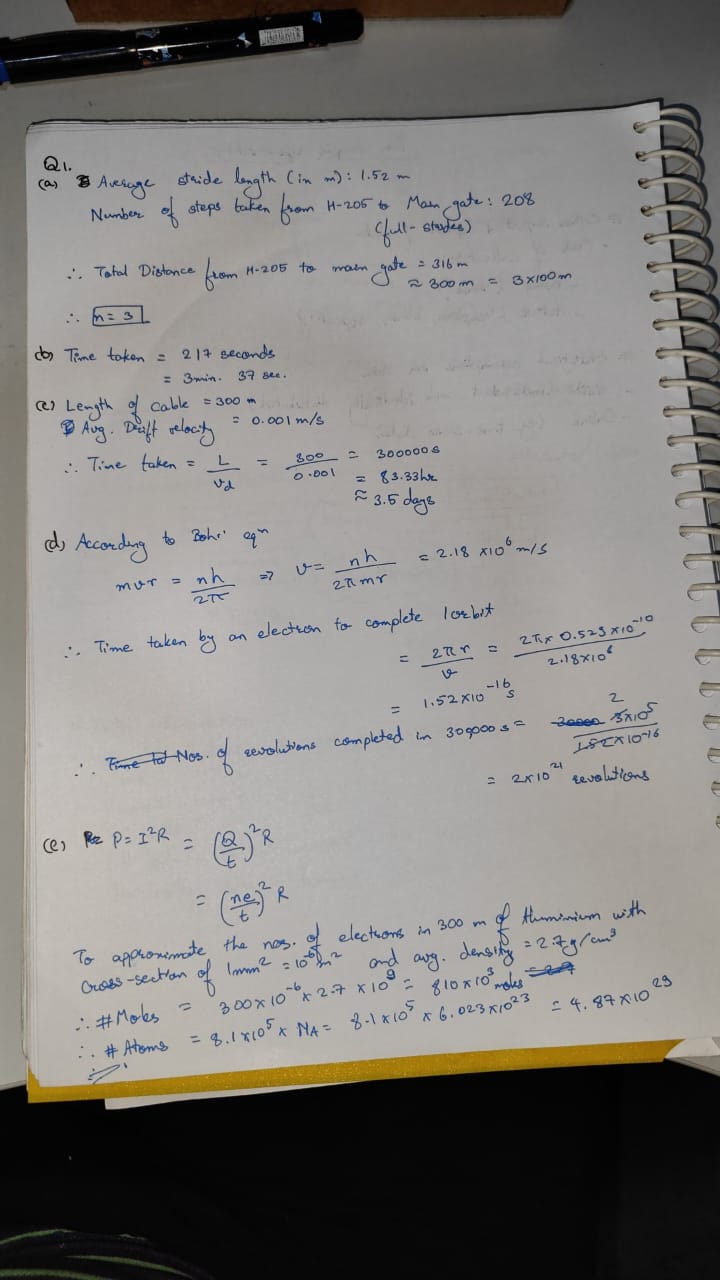 Q1.
(a) Average stride length (in m): 1.52 m
Number of steps taken from H-205 to Main gate: 208
(full-strides)
∴ Total Distance from H-205 to main gate = 316 m
≈ 300 m = 3×100m
∴ n = 3
(b) Time taken = 217 seconds
= 3min. 37 sec.
(c) Length of Cable = 300 m
Avg. Drift velocity = 0.001 m/s
∴ Time taken = L/vd = 300/0.001 = 300000 s
= 83.33hr
≈ 3.5 days
(d) According to Bohr' eqn
mvr = nh/2π ⇒ v = nh/2πmr = 2.18 ×10^6 m/s
∴ Time taken by an electron to complete 1 orbit
= 2πr/v = 2π× 0.529×10^-10/2.18×10^6
= 1.52×10^-16 s
∴ Nos. of revolutions completed in 300000 s = 2 3×10^5/1.52×10^-16
= 2×10^21 revolutions
(e) P = I²R = (Q/t)² R
= (ne/t)² R
To approximate the nos. of electrons in 300 m of Aluminium with
cross-section of 1mm² = 10^-6 m² and avg. density = 2.7g/cm³
∴ #Moles = 300×10^-6 × 2.7 × 10^9 = 810×10^3 moles
∴ # Atoms = 8.1×10^5 × NA = 8.1×10^5 × 6.023×10^23 = 4.87×10^29